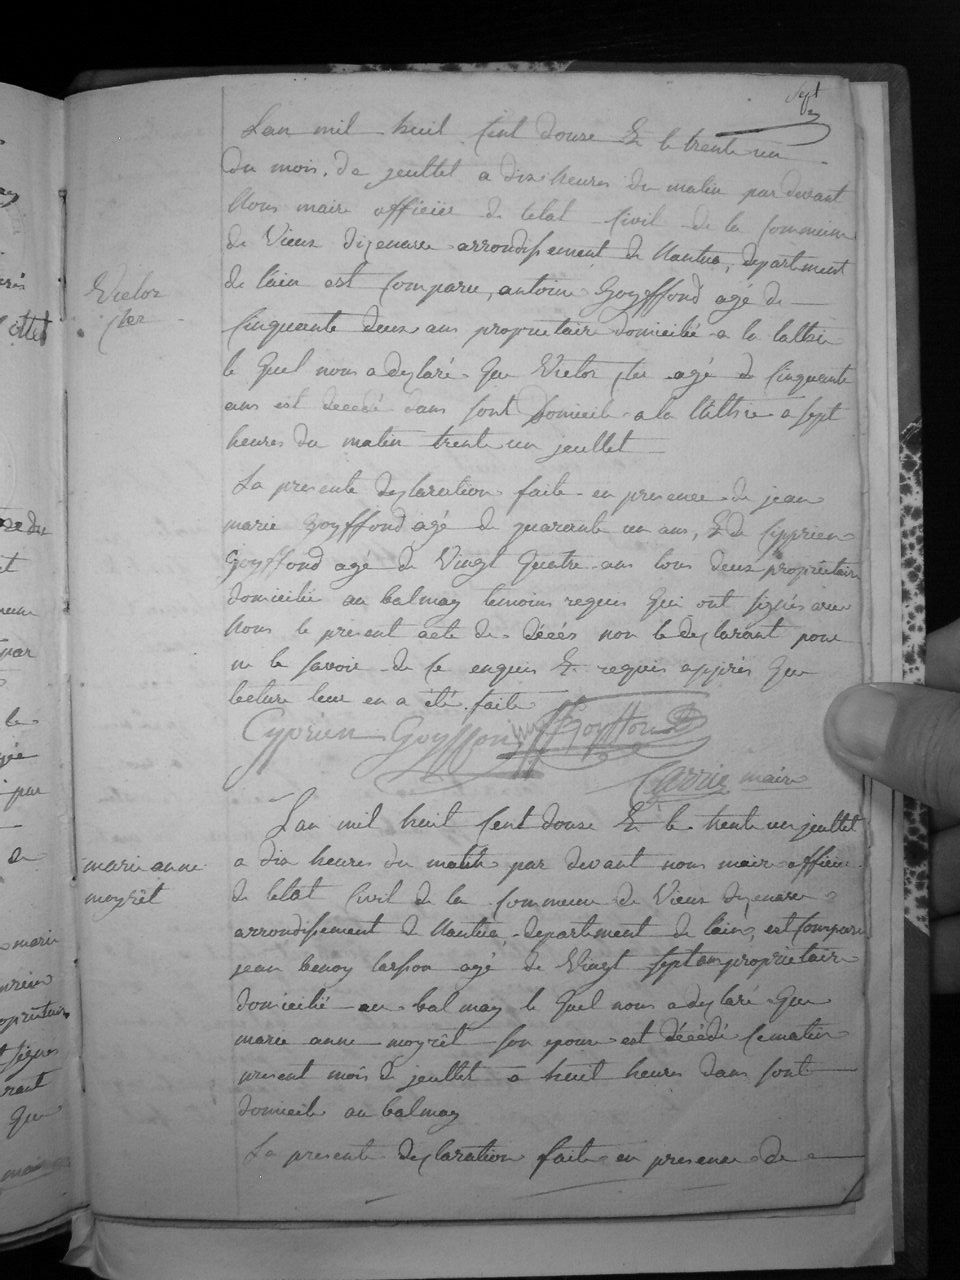 Sept
L'an mil huit Cent douse Et le trente un
du mois de jeullet a dix heures du matin par devant
Nous maire officier de letat Civil de la Commune
de Vieux dizenave arrondissement de Nantua, department
de l'ain est Comparu, antoine Goyffond agé de
Cinquante deux ans proprietaire domicilié a la
le quel nous a deglaré que Victor agé de Cinquante
ans est decedé dans sont Domicile a la a sept
heures du matin trente un jeullet
La presente deglaration faite en presence de jean
marie Goyffond agé de quarente un ans, Et de Cyprien
Goyffond agé de Vingt quatre ans tous deux proprietaire
domicilié au balmay temoins requis qui ont signés avec
Nous le present acte de décés non le deglarant pour
ne le savoir de ce enquis Et requis appres que
lecture leur en a été faite
Cyprien Goyffon Goyffon
Carrier maire
Victor
L'an mil huit Cent douse Et le trente un jeullet
a dix heures du matin par devant nous maire officier
de letat Civil de la Commune de Vieux dizenave
arrondissement de Nantua, department de l'ain, est Comparu
jean benoy agé de Vingt sept ans proprietaire
domicilié au balmay le quel nous a deglaré que
marie anne moyrêt son epouse est décédé Cematin
present mois de jeullet a huit heures dans sont
domicile au balmay
La presente deglaration faite en presence de
marie anne
moyrêt